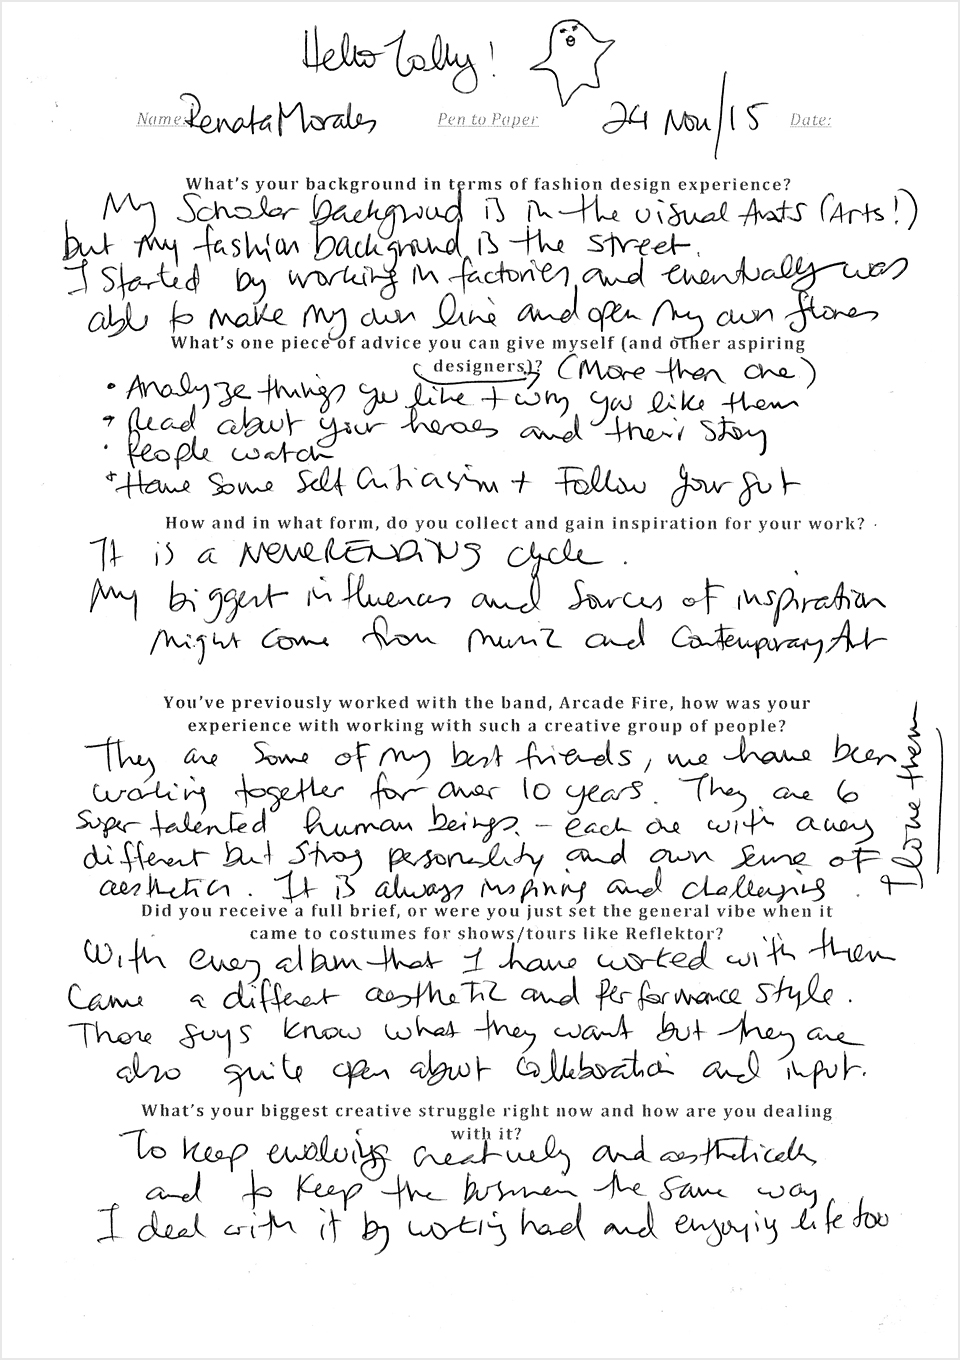 Hello Tally!
Name: Renata Morales Pen to Paper 24 Nov/15 Date:
What's your background in terms of fashion design experience?
My Scholar background is in the visual Arats (Arts!)
but my fashion background is the street.
I started by working in factories and eventually was
able to make my own line and open my own stores
What's one piece of advice you can give myself (and other aspiring
designers)? (More then one)
• Analyze things you like + why you like them
• Read about your heroes and their story
• People watch
• Have some self critiasism + Follow your gut
How and in what form, do you collect and gain inspiration for your work?
It is a NEVERENDING cycle.
My biggest influences and sources of inspiration
might come from music and Contemporary Art
You've previously worked with the band, Arcade Fire, how was your
experience with working with such a creative group of people?
They are some of my best friends, we have been
working together for over 10 years. They are 6
super talented human beings. - each one with a very
different but strong personality and own sense of
aesthetics. It is always inspiring and challenging.
I love them
Did you receive a full brief, or were you just set the general vibe when it
came to costumes for shows/tours like Reflektor?
With every album that I have worked with them
came a different aesthetic and performance style.
Those guys know what they want but they are
also quite open about collaboration and input.
What's your biggest creative struggle right now and how are you dealing
with it?
To keep evolving creatively and aesthetically
and to keep the business the same way
I deal with it by working hard and enjoying life too